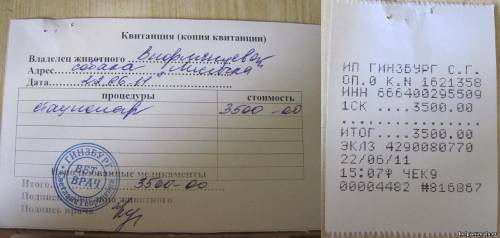 Квитанция (копия квитанции)
Владелец животного
Адрес собака
Дата 22.06.11
процедуры стоимость
стационар 3500-00
Использованные медикаменты
Итого 3500-00
Подпись врача
ГИНЗБУРГ
ВЕТ
ВРАЧ
ИП ГИНЗБУРГ С.Г.
ОП.0 К.N 1621358
ИНН 666400295509
1СК ...3500.00
ИТОГ...3500.00
ЭКЛЗ 4290080770
22/06/11
15:07Ф ЧЕК9
00004482 #816867